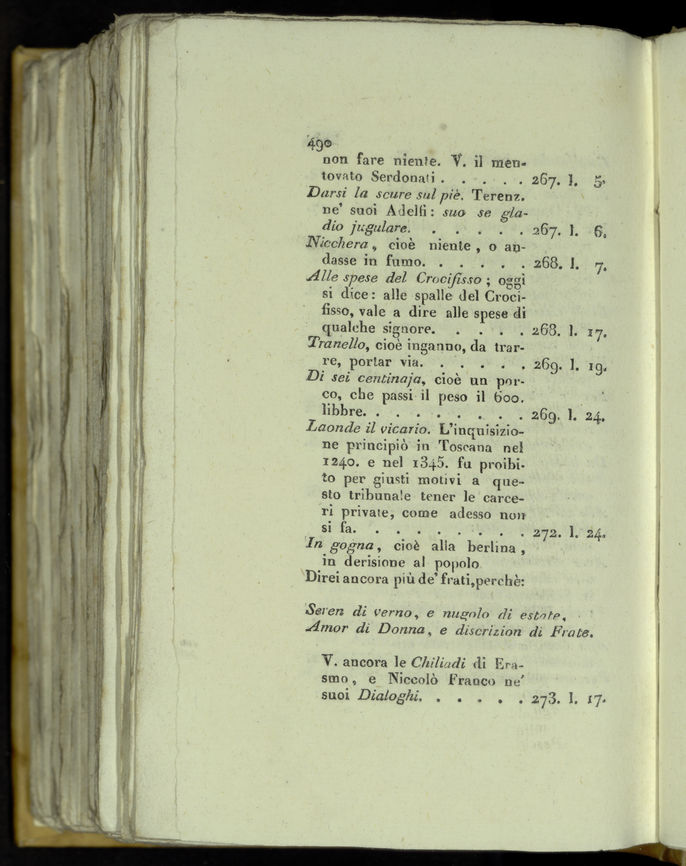 490
non fare niente. V. il men-
tovato Serdonati . . . . . 267. l. 5.
Darsi la scure sul piè. Terenz.
ne' suoi Adelfi: suo se gla-
dio jugulare. . . . . . 267. l. 6.
Nicchera, cioè niente, o an-
dasse in fumo. . . . . . 268. l. 7.
Alle spese del Crocifisso; oggi
si dice: alle spalle del Croci-
fisso, vale a dire alle spese di
qualche signore. . . . . 268. l. 17.
Tranello, cioè inganno, da trar-
re, portar via. . . . . . 269. l. 19.
Di sei centinaja, cioè un por-
co, che passi il peso il 600.
libbre. . . . . . . . . 269. l. 24.
Laonde il vicario. L'inquisizio-
ne principiò in Toscana nel
1240. e nel 1345. fu proibi-
to per giusti motivi a que-
sto tribunale tener le carce-
ri private, come adesso non
si fa. . . . . . . . . 272. l. 24.
In gogna, cioè alla berlina,
in derisione al popolo
Direi ancora più de' frati, perchè:
Seren di verno, e nugolo di estate,
Amor di Donna, e discrizion di Frate.
V. ancora le Chiliadi di Era-
smo, e Niccolò Franco ne'
suoi Dialoghi. . . . . . 273. l. 17.